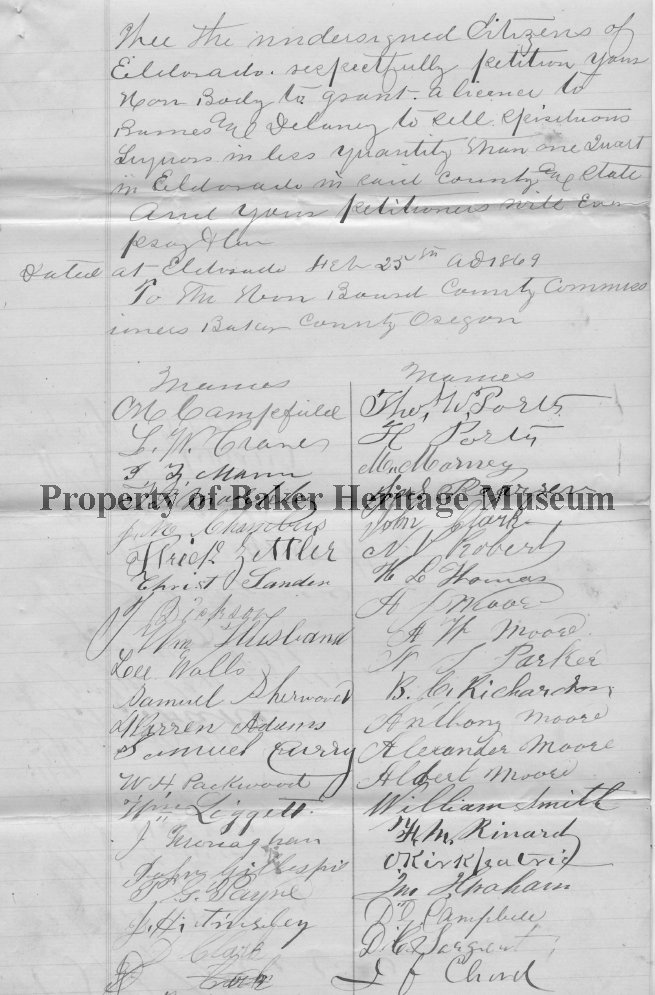 Wee the undersigned Citizens of
Eldorado. respectfully petition your
Hon Body to grant. a licence to
Barnes and Delaney to sell Spirituous
Liquors in less quantity than one Quart
in Eldorado in said County and State
And your petitioners will Ever
pray &
Dated at Eldorado Feb 25th AD 1869
To The Hon Board County Commiss
ioners Baker County Oregon
Names
Names
C. W. Crane
T. Z. Mann
Property of Baker Heritage Museum
Ulrick Zittler
Christ Sanden
J Dickson
Wm Husband
Lee Walls
Samuel Sherwood
Warren Adams
Samuel Curry
W H Packwood
Wm Liggett.
J Monaghan
John Gillespie
T G Payne
J. H. Tinsley
D Clark
Tho, W, Porty
H Porty
John Clark
N J Robert
H L Thomas
A J Moore
A W Moore
W J Parker
B. C. Richardson
Anthony Moore
Alexander Moore
Albert Moore
William Smith
H M. Rinard
Kirkpatrick
Jno Graham
D G Campbell
D. C. Sargent
I F Chord